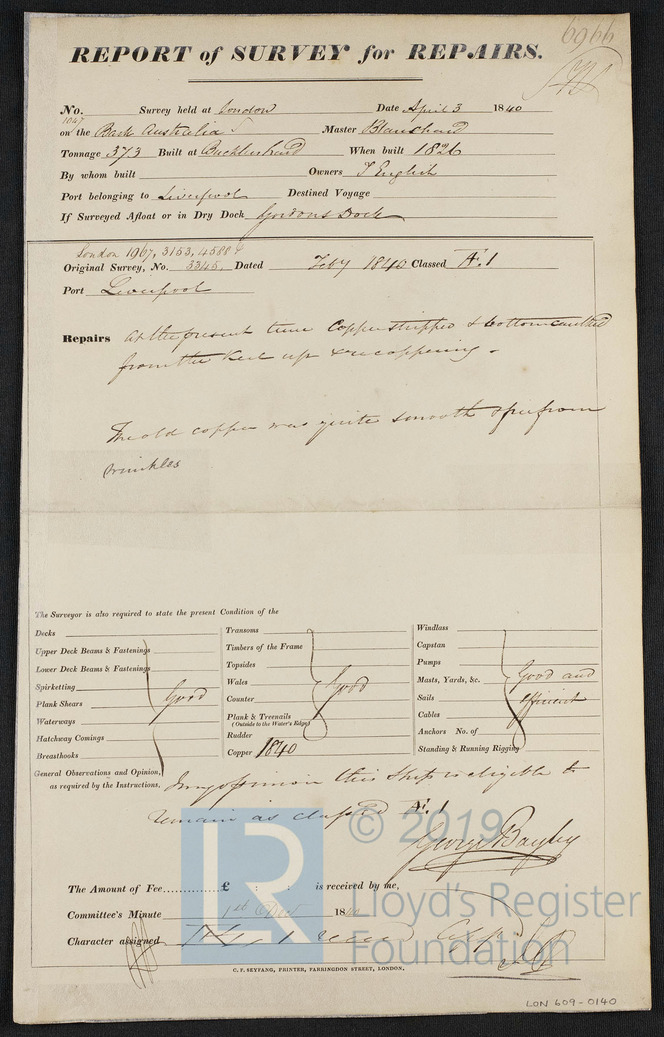 6966
REPORT of SURVEY for REPAIRS.
No. Survey held at London Date April 3 1840
1047
on the Bark Australia Master Blanchard
Tonnage 373 Built at Bucklershard When built 1826
By whom built Owners J English
Port belonging to Liverpool Destined Voyage
If Surveyed Afloat or in Dry Dock Gordons Dock
London 1967, 3153, 4588
Original Survey, No. 3345, Dated Feby 1840 Classed Æ.1
Port Liverpool
Repairs At the present time Copper stripped & bottom caulked
from the Keel up & recoppering.
The old copper was quite smooth & free from
wrinkles
The Surveyor is also required to state the present Condition of the
Decks
Upper Deck Beams & Fastenings
Lower Deck Beams & Fastenings
Spirketting
Plank Shears
Waterways
Hatchway Comings
Breasthooks
Good
Transoms
Timbers of the Frame
Topsides
Wales
Counter
Plank & Treenails
(Outside to the Water's Edge)
Rudder
Copper 1840
Good
Windlass
Capstan
Pumps
Masts, Yards, &c.
Sails
Cables
Anchors No. of
Standing & Running Rigging
Good and
efficient
General Observations and Opinion,
as required by the Instructions,
In my opinion this Ship is eligible to
remain as classed Æ.1
George Bayley
The Amount of Fee............£ : : is received by me,
Committee's Minute 1st 1840
Character assigned
C. F. SEYFANG, PRINTER, FARRINGDON STREET, LONDON.
LON 609-0140
LR
© 2019
Lloyd's Register
Foundation